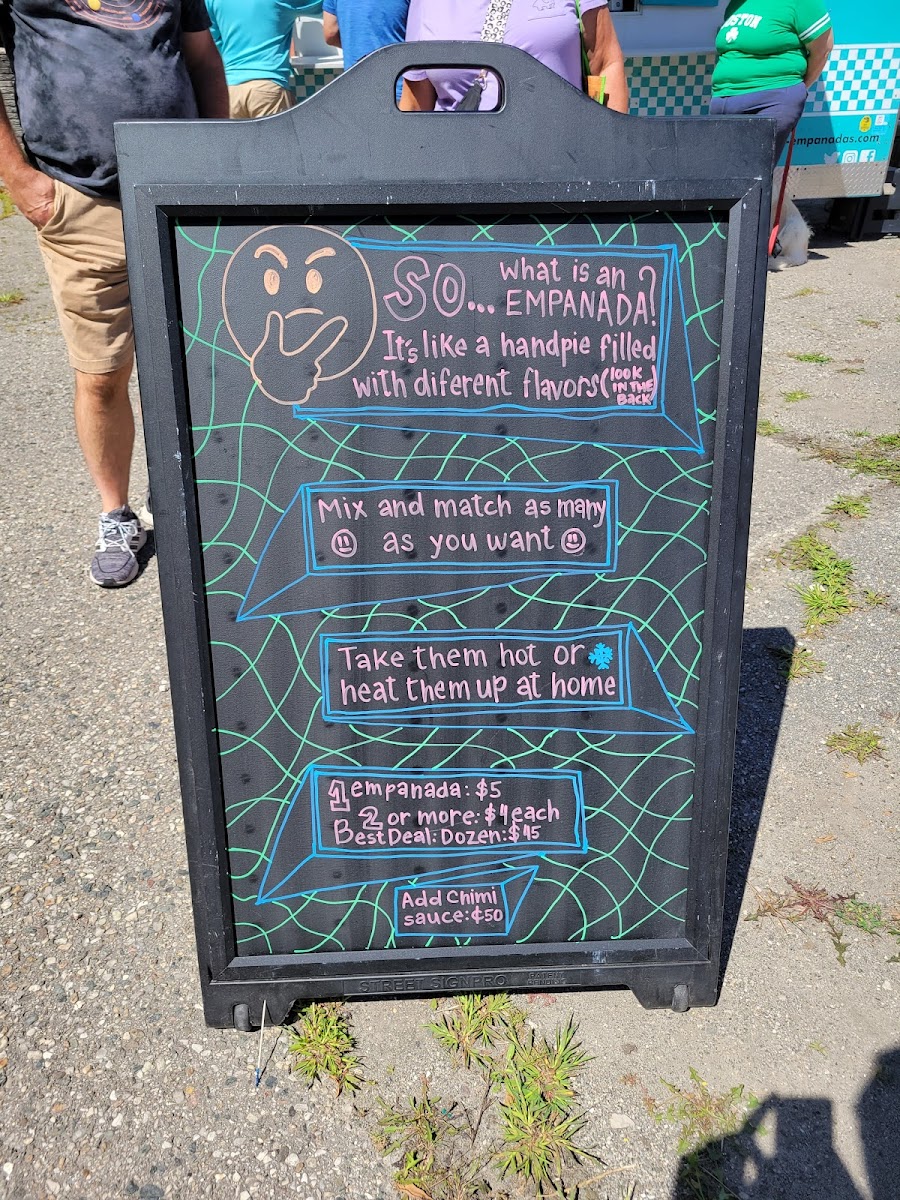 SO... what is an
EMPANADA?
It's like a handpie filled
with diferent flavors (look
in the
back)
Mix and match as many
as you want
Take them hot or
heat them up at home
1 empanada: $5
2 or more: $4 each
Best Deal: Dozen: $45
Add Chimi
sauce: ¢50
STREET SIGN PRO
empanadas.com